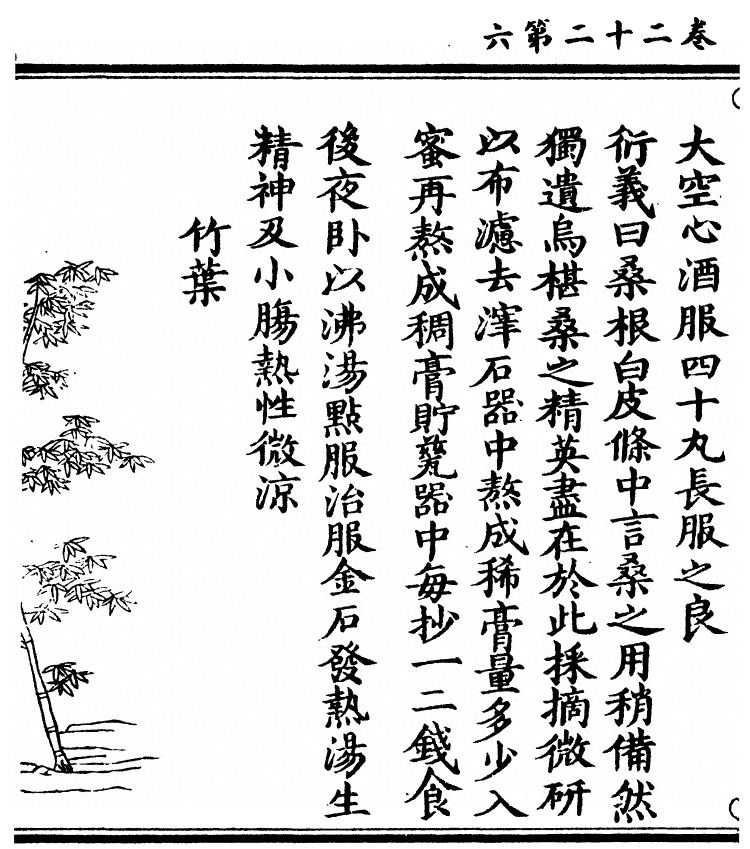 卷二十二第六
大空心酒服四十丸長服之良
衍義曰桑根白皮條中言桑之用稍備然
獨遺烏椹桑之精英盡在於此採摘微研
以布濾去滓石器中熬成稀膏量多少入
蜜再熬成稠膏貯甆器中每抄一二錢食
後夜卧以沸湯點服治服金石發熱渴生
精神及小腸熱性微涼
竹葉